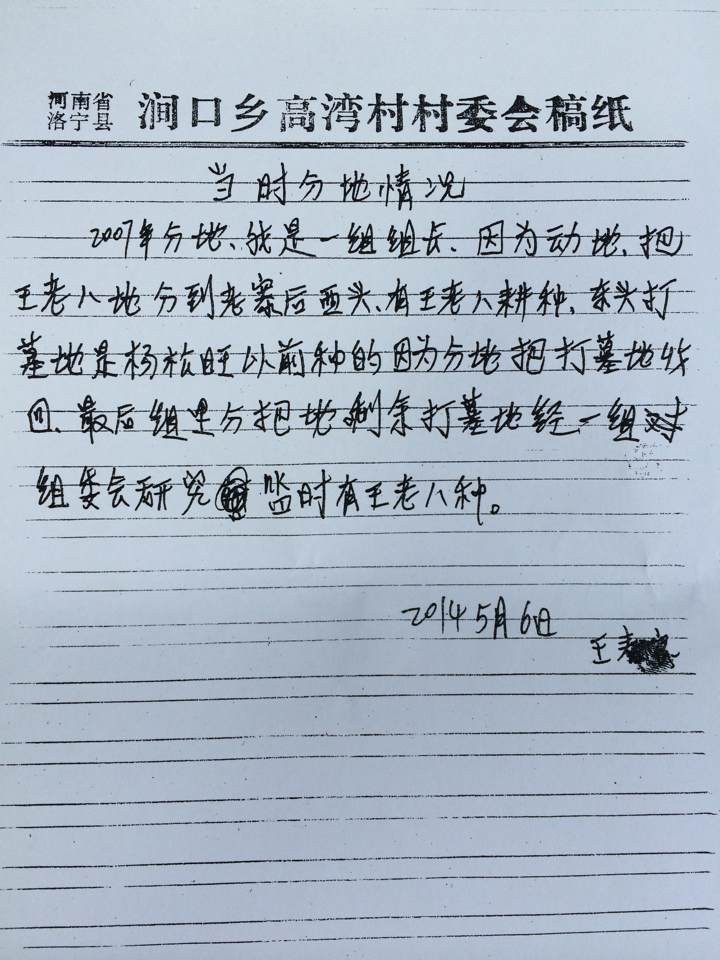 河南省
洛宁县
涧口乡高湾村村委会稿纸
当时分地情况
2007年分地、我是一组组长、因为动地、把
王老八地分到老寨后西头、有王老八耕种、东头打
墓地是杨松旺以前种的因为分地把打墓地收
回、最后组里分把地剩余打墓地经一组
组委会研究 临时有王老八种。
2014 5月6日
王